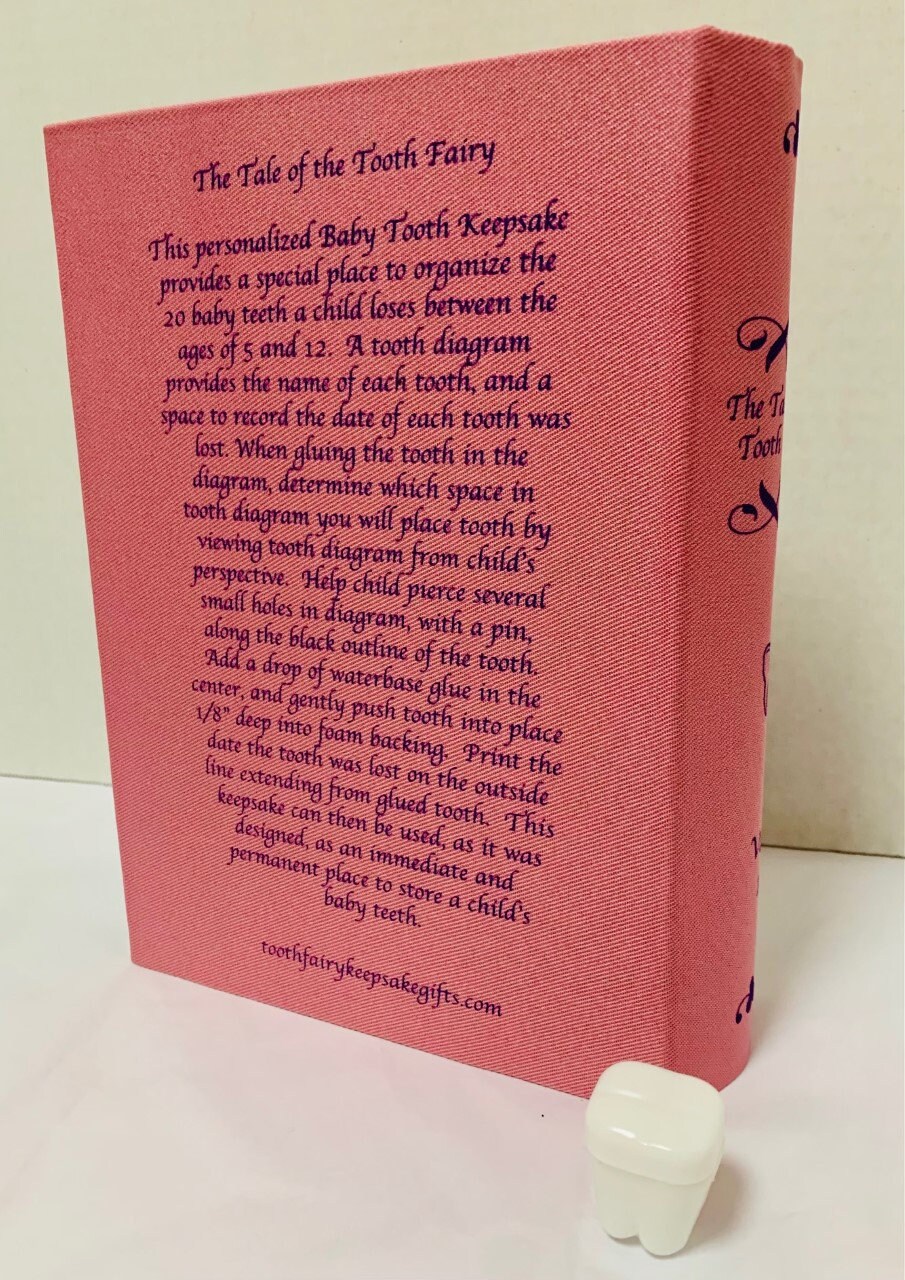 The Tale of the Tooth Fairy
This personalized Baby Tooth Keepsake
provides a special place to organize the
20 baby teeth a child loses between the
ages of 5 and 12. A tooth diagram
provides the name of each tooth, and a
space to record the date of each tooth was
lost. When gluing the tooth in the
diagram, determine which space in
tooth diagram you will place tooth by
viewing tooth diagram from child's
perspective. Help child pierce several
small holes in diagram, with a pin,
along the black outline of the tooth.
Add a drop of waterbase glue in the
center, and gently push tooth into place
1/8" deep into foam backing. Print the
date the tooth was lost on the outside
line extending from glued tooth. This
keepsake can then be used, as it was
designed, as an immediate and
permanent place to store a child's
baby teeth.
toothfairykeepsakegifts.com
The Ta
Tooth